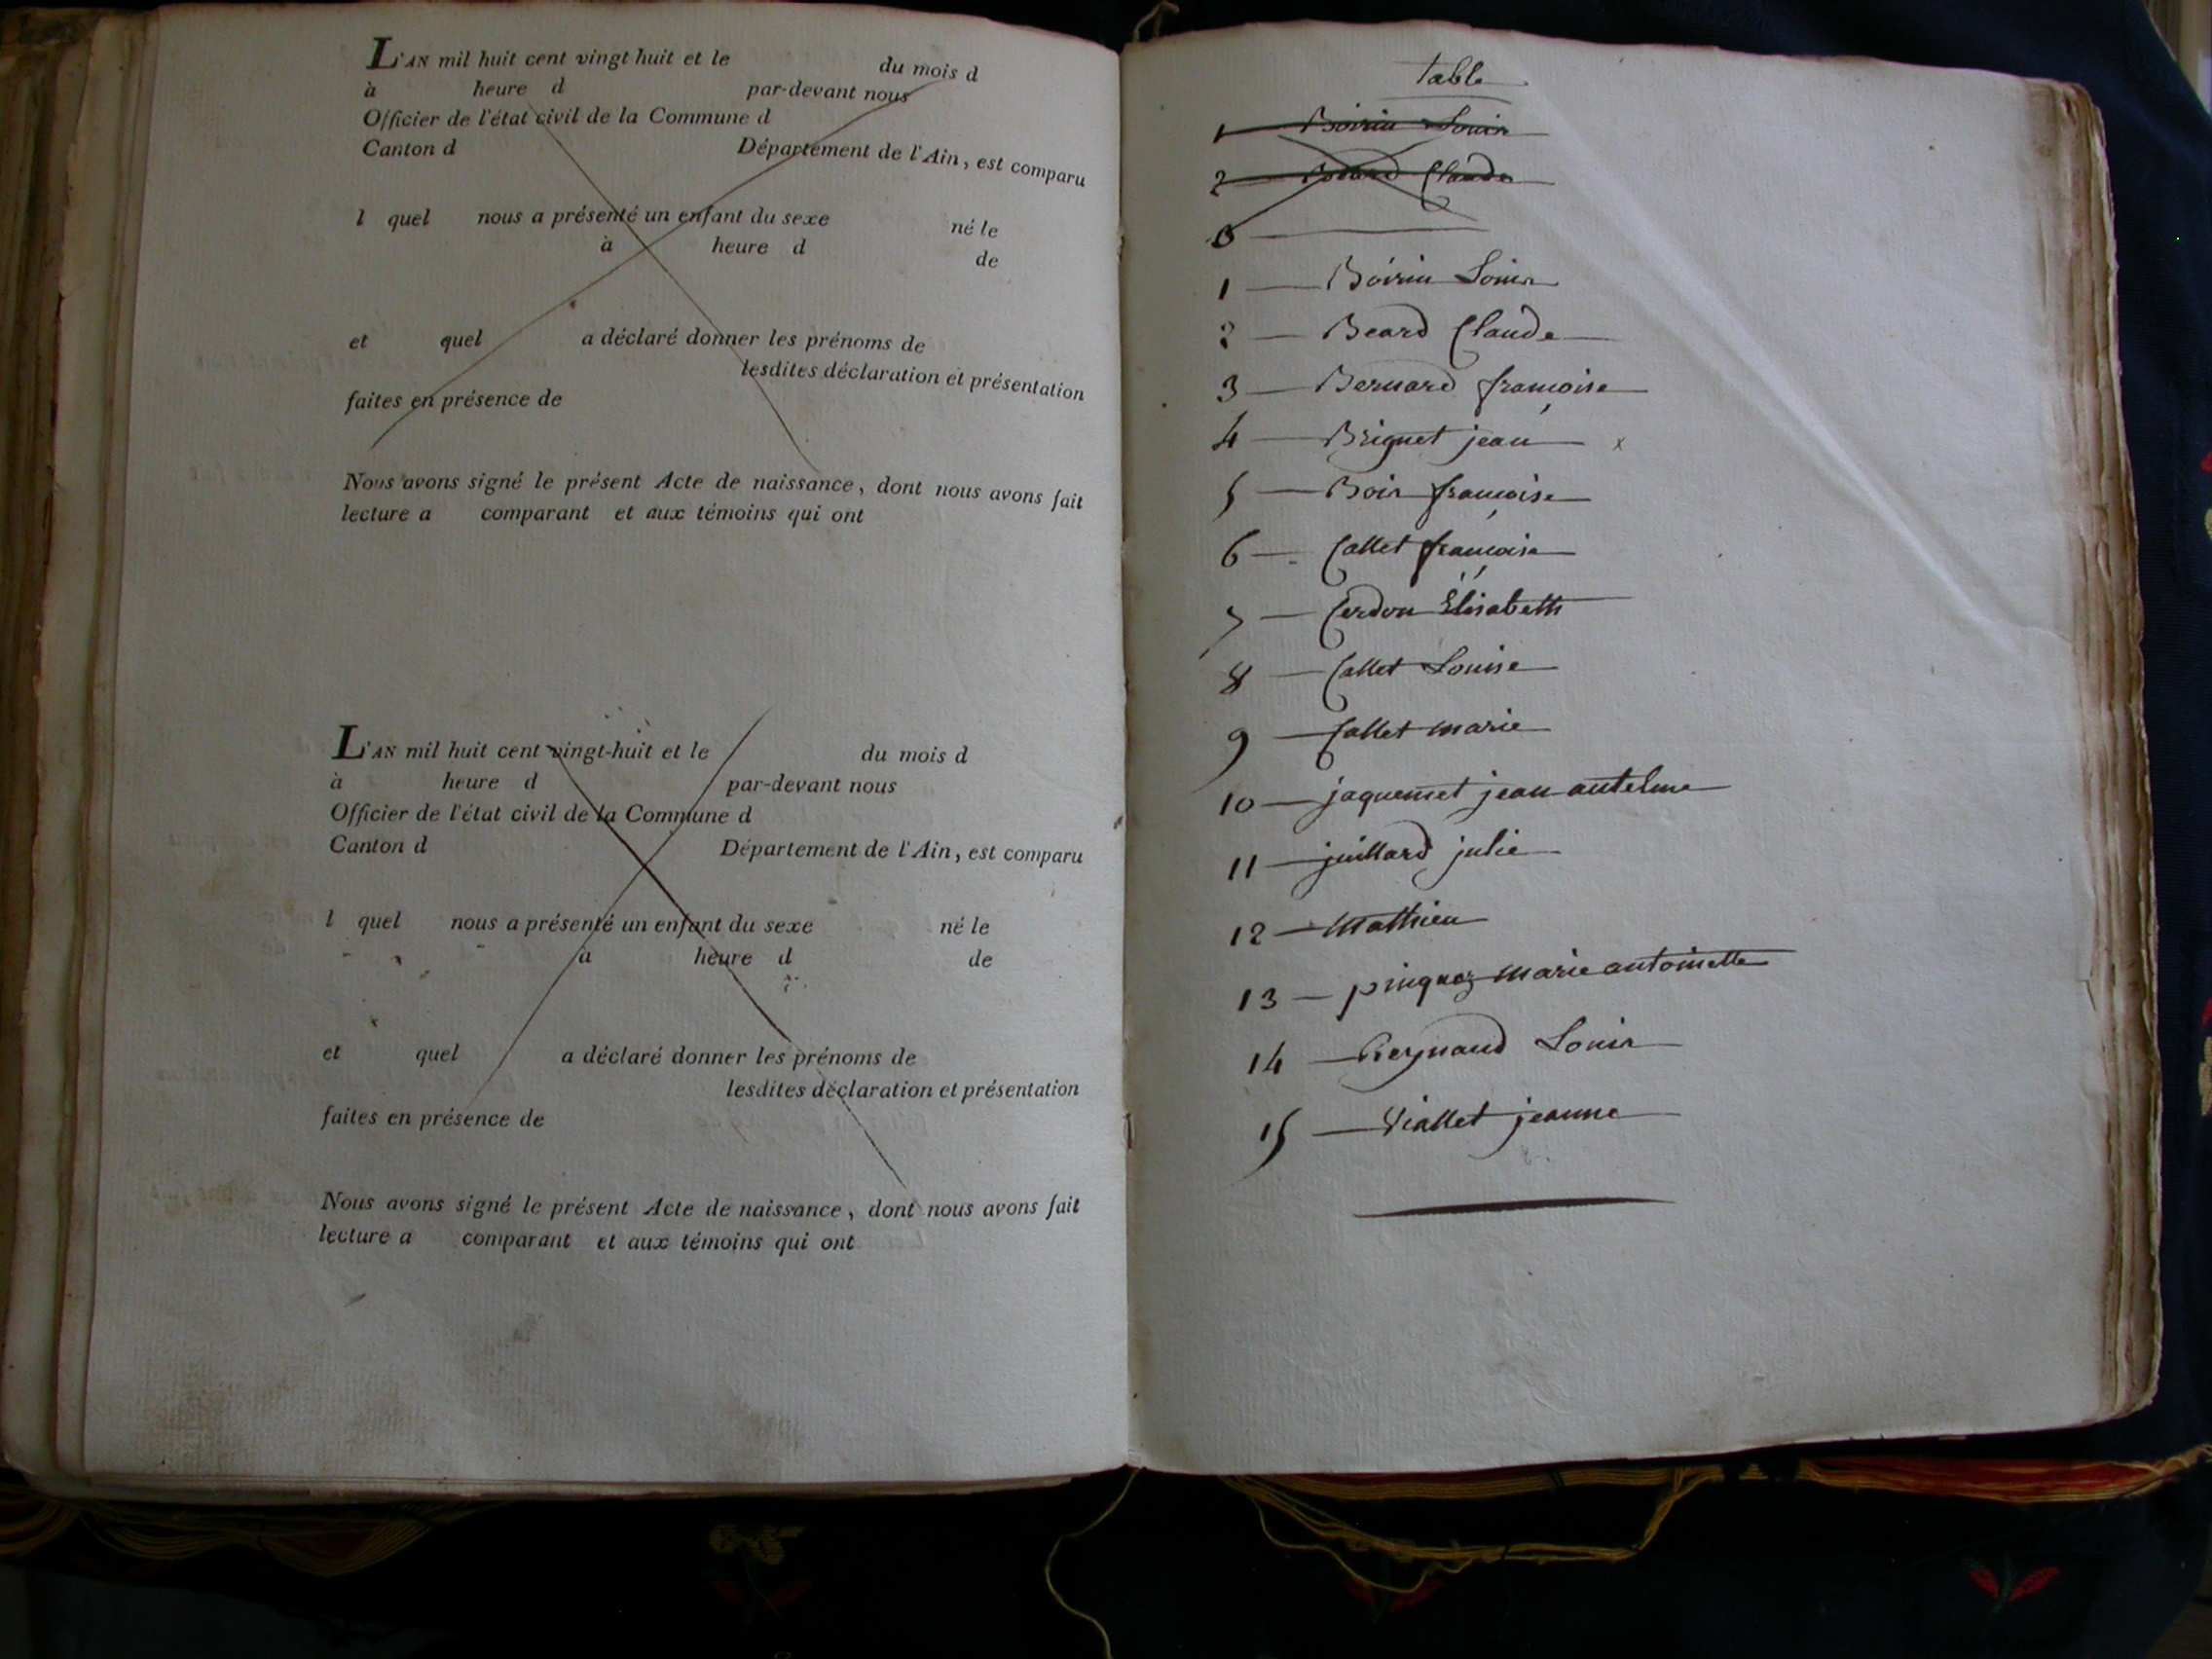 L'AN mil huit cent vingt huit et le du mois d
à heure d par-devant nous
Officier de l'état civil de la Commune d
Canton d Département de l'Ain, est comparu
l quel nous a présenté un enfant du sexe né le
à heure d de
et quel a déclaré donner les prénoms de
lesdites déclaration et présentation
faites en présence de
Nous avons signé le présent Acte de naissance, dont nous avons fait
lecture a comparant et aux témoins qui ont
L'AN mil huit cent vingt-huit et le du mois d
à heure d par-devant nous
Officier de l'état civil de la Commune d
Canton d Département de l'Ain, est comparu
l quel nous a présenté un enfant du sexe né le
à heure d de
et quel a déclaré donner les prénoms de
lesdites déclaration et présentation
faites en présence de
Nous avons signé le présent Acte de naissance, dont nous avons fait
lecture a comparant et aux témoins qui ont
table
1 — Boirin Louis
2 — Claude
3 —
1 — Boirin Louis
2 — Beard Claude
3 — Bernard françoise
4 — Briguet jean x
5 — Bois françoise
6 — Callet françoise
7 — Cerdon Élisabeth
8 — Callet Louise
9 — Callet marie
10 — jaquemet jean antelme
11 — juillard julie
12 — Mathieu
13 — pinguez marie antoinette
14 — Reynaud Louis
15 — Viallet jeanne